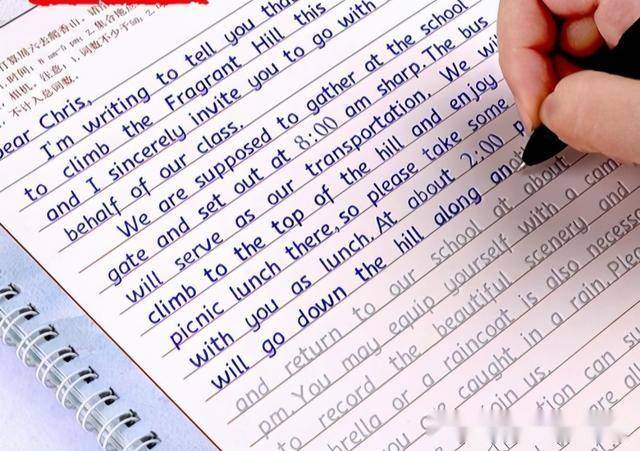 打算周六去爬香山
1.时间:
2.集合地点
相机。注意:1.词数不少于50;2.
不计入总词数。
Dear Chris,
I'm writing to tell you that
to climb the Fragrant Hill this
and I sincerely invite you to go with
behalf of our class.
We are supposed to gather at the school
gate and set out at 8:00 am sharp. The bus
will serve as our transportation. We will
climb to the top of the hill and enjoy
picnic lunch there, so please take some
with you as lunch. At about 2:00 p
will go down the hill along ano
and return to our school at about
pm. You may equip yourself with a cam
to record the beautiful scenery and
brella or a raincoat is also necess
you caught in a rain. Plea
join us.
tion can su
ere all